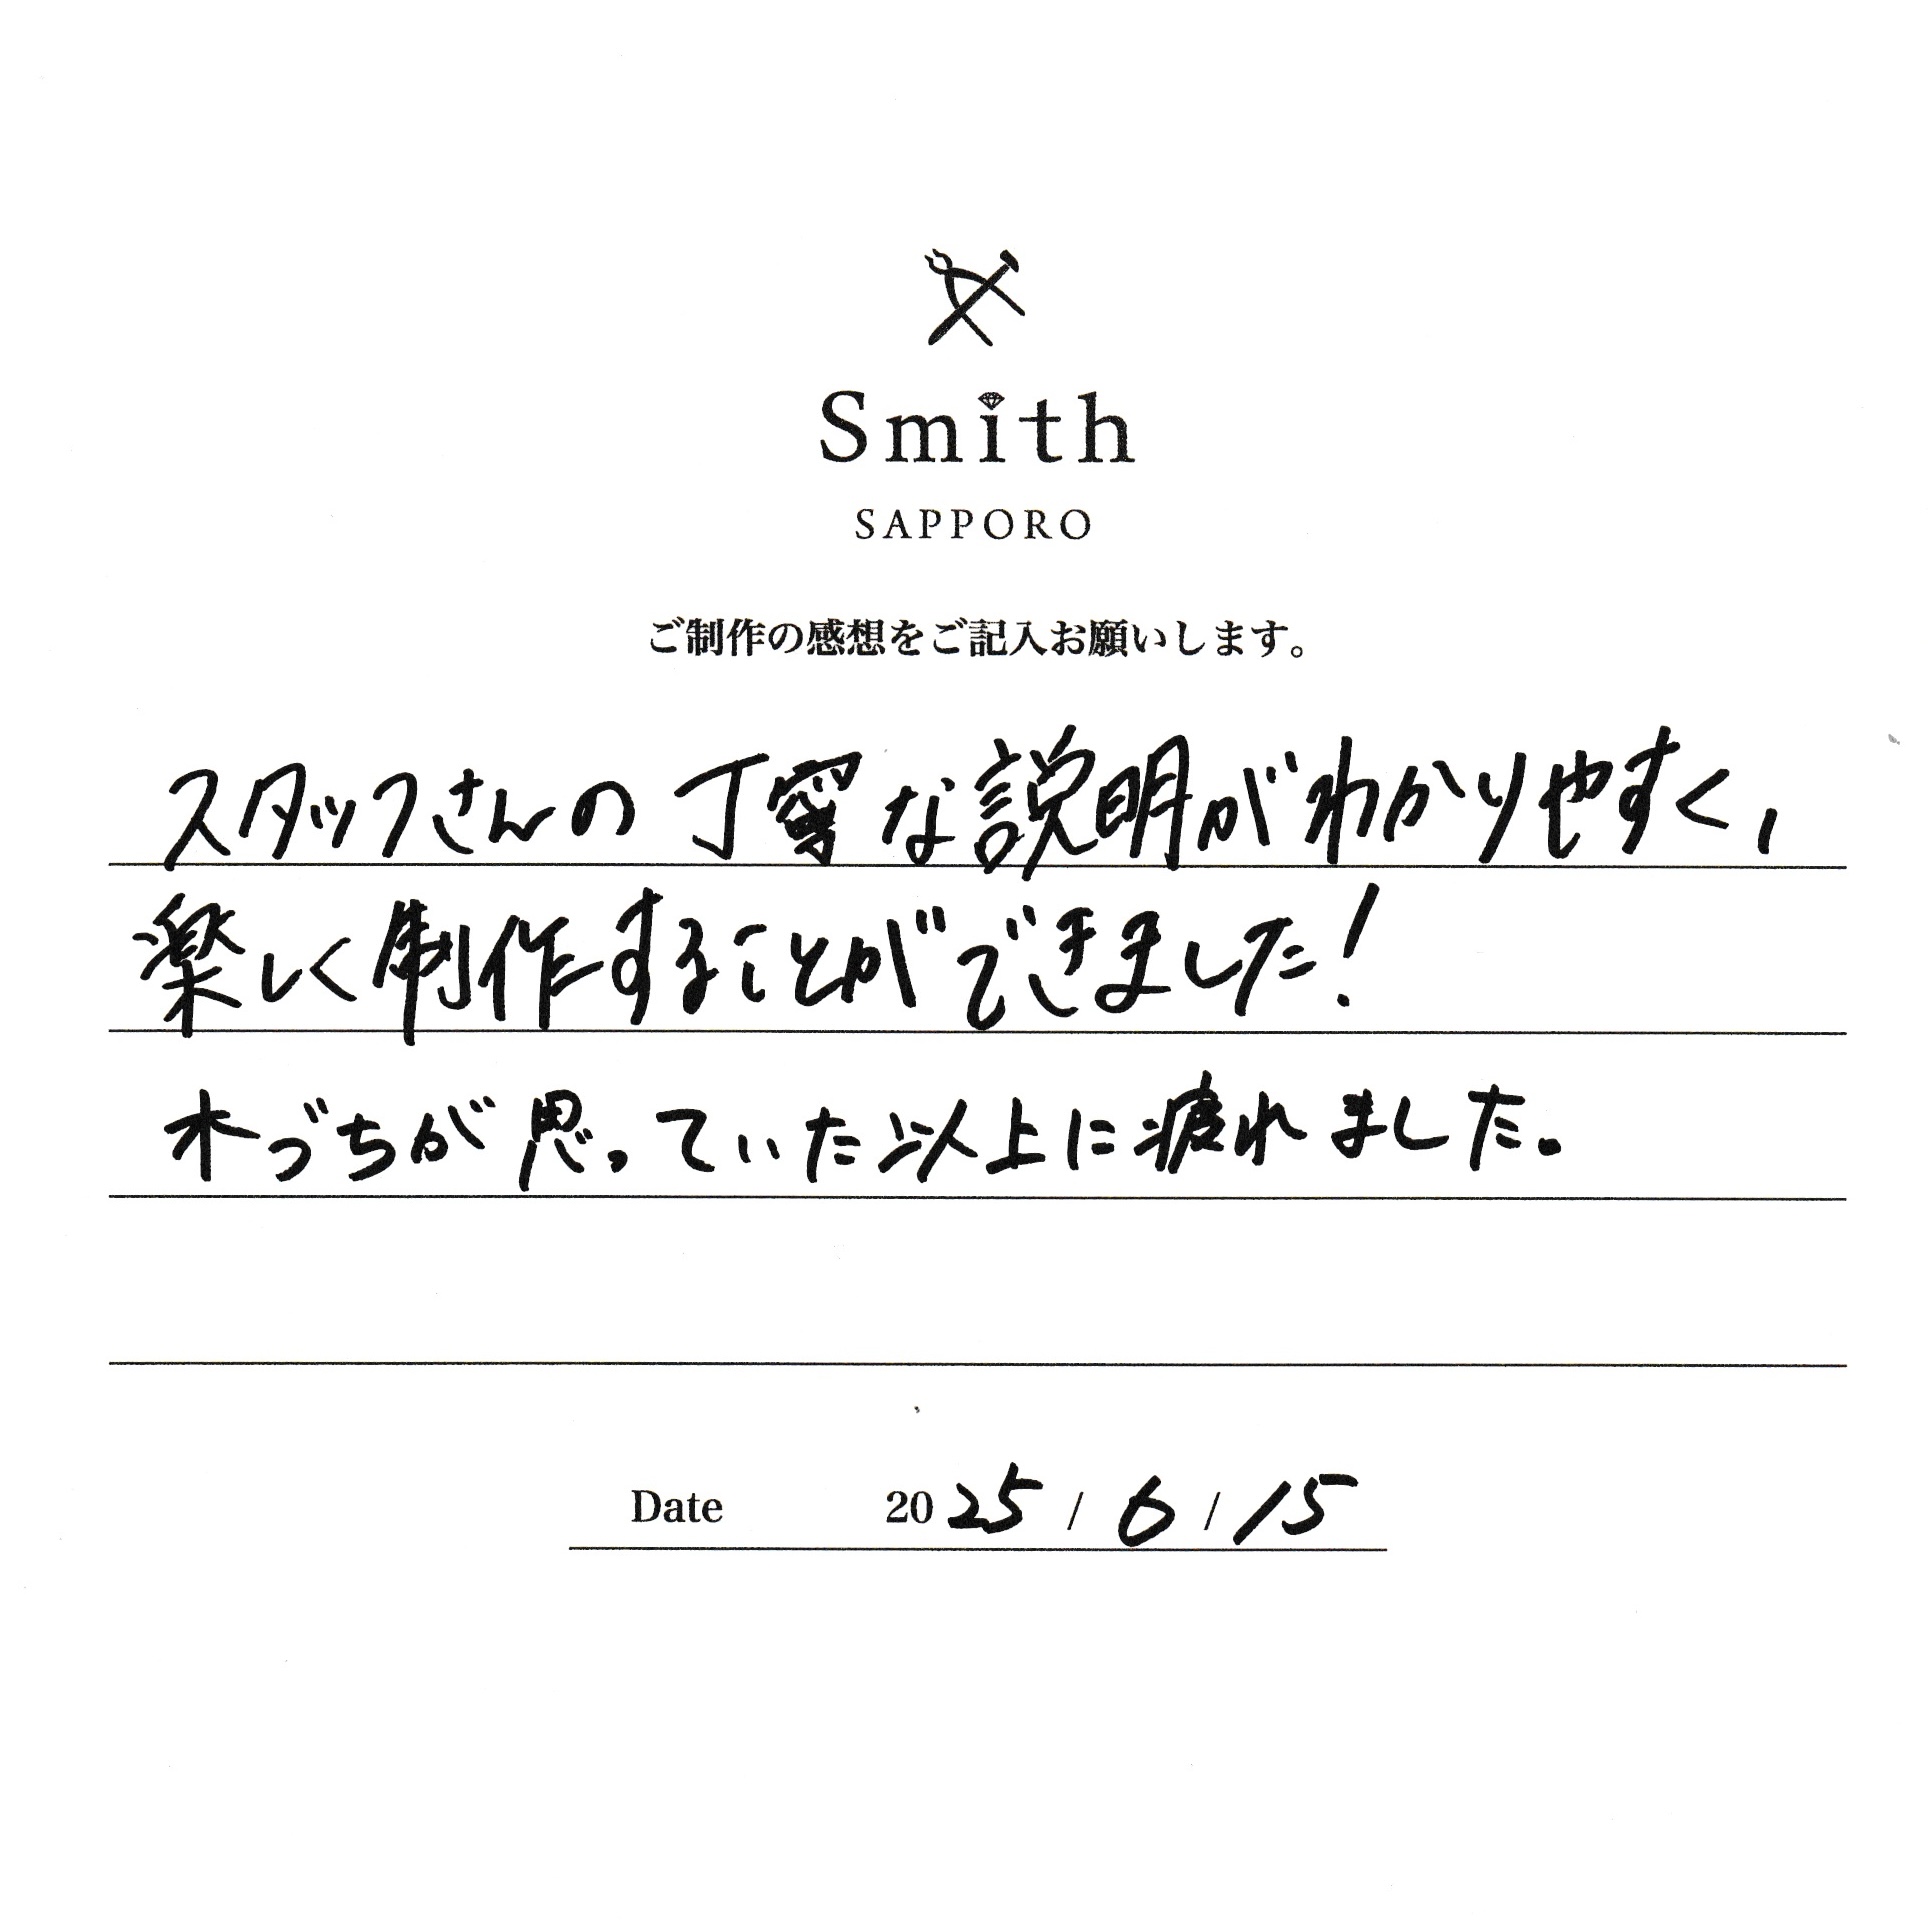 Smith
SAPPORO
ご制作の感想をご記入お願いします。
スタッフさんの丁寧な説明がわかりやすく、
楽しく制作することができました!
木づちが思っていた以上に疲れました。
Date 2025 / 6 / 15